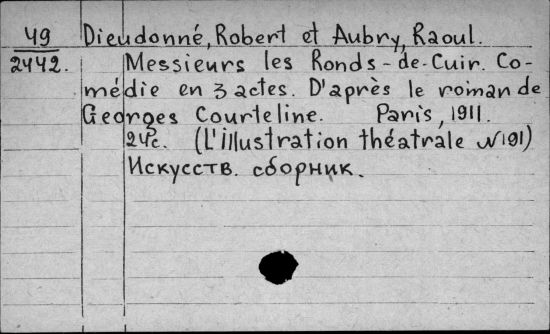 49 Dieudonné, Robert et Aubry, Raoul.
2442. Messieurs les Ronds-de-Cuir. Co-
médie en 3 actes. D'après le roman de
Georges Courteline. Paris, 1911.
24c. (L'illustration théatrale N 191)
Искусств. сборник.